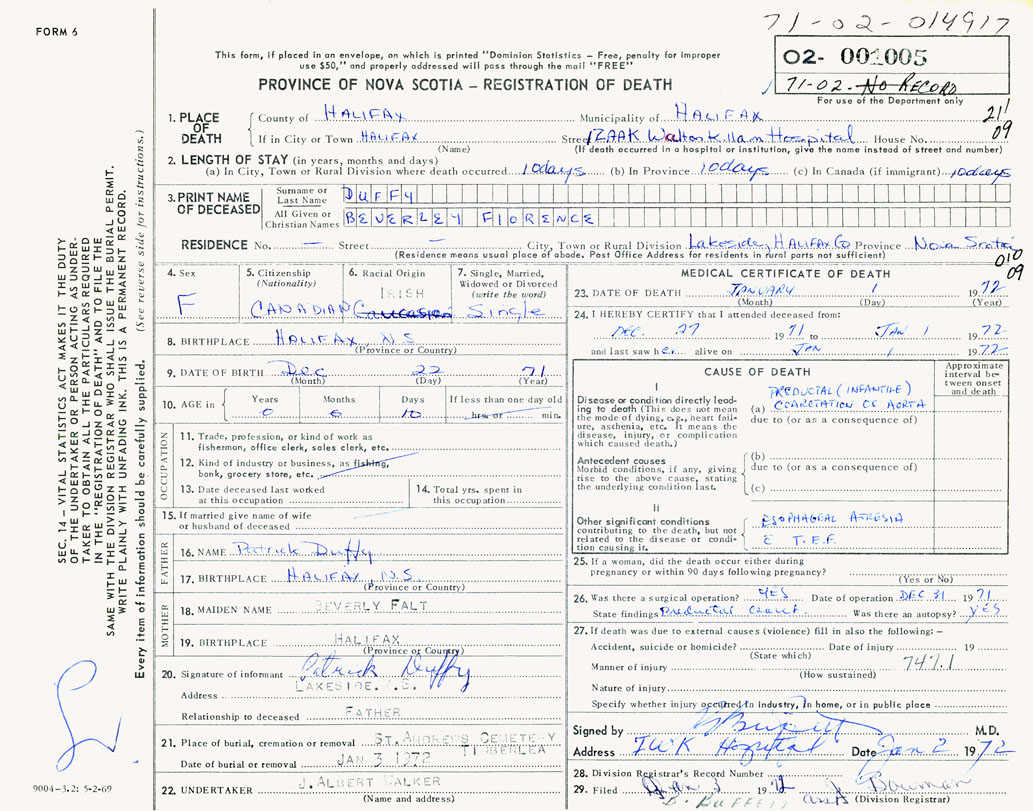 71-02-014917
FORM 6
This form, if placed in an envelope, on which is printed "Dominion Statistics – Free, penalty for improper
use $50," and properly addressed will pass through the mail "FREE"
02- 001005
71-02- No RECORD
For use of the Department only
PROVINCE OF NOVA SCOTIA – REGISTRATION OF DEATH
21/09
1. PLACE OF DEATH
County of HALIFAX Municipality of HALIFAX
If in City or Town HALIFAX Street IZAAK Walton Killam Hospital House No.
(Name) (If death occurred in a hospital or institution, give the name instead of street and number)
2. LENGTH OF STAY (in years, months and days)
(a) In City, Town or Rural Division where death occurred 10days (b) In Province 10days (c) In Canada (if immigrant) 10days
3. PRINT NAME OF DECEASED
Surname or Last Name DUFFY
All Given or Christian Names BEVERLEY FLORENCE
RESIDENCE No. — Street — City, Town or Rural Division Lakeside, HALIFAX Co Province Nova Scotia
(Residence means usual place of abode. Post Office Address for residents in rural parts not sufficient)
010
09
4. Sex
F
5. Citizenship
(Nationality)
CANADIAN
6. Racial Origin
IRISH
Caucasian
7. Single, Married,
Widowed or Divorced
(write the word)
Single
8. BIRTHPLACE HALIFAX, N.S
(Province or Country)
9. DATE OF BIRTH Dec 22 71
(Month) (Day) (Year)
10. AGE in
Years Months Days If less than one day old
0 0 10 hrs. or min.
OCCUPATION
11. Trade, profession, or kind of work as
fishermon, office clerk, sales clerk, etc.
12. Kind of industry or business, as fishing,
bank, grocery store, etc.
13. Date deceased last worked
at this occupation
14. Total yrs. spent in
this occupation
15. If married give name of wife
or husband of deceased
FATHER
16. NAME Patrick Duffy
17. BIRTHPLACE HALIFAX, N.S.
(Province or Country)
MOTHER
18. MAIDEN NAME BEVERLY FALT
19. BIRTHPLACE HALIFAX
(Province or Country)
20. Signature of informant Patrick Duffy
Address LAKESIDE. N.S.
Relationship to deceased FATHER
21. Place of burial, cremation or removal ST. ANDREWS CEMETERY
TIMBERLEA
Date of burial or removal JAN 3 1972
22. UNDERTAKER J. ALBERT WALKER
(Name and address)
MEDICAL CERTIFICATE OF DEATH
23. DATE OF DEATH JANUARY 1 1972
(Month) (Day) (Year)
24. I HEREBY CERTIFY that I attended deceased from:
DEC. 27 1971 to JAN 1 1972
and last saw her alive on JAN 1 1972
CAUSE OF DEATH
Approximate
interval be-
tween onset
and death
I
Disease or condition directly lead-
ing to death (This does not mean
the mode of dying, e.g., heart fail-
ure, asthenia, etc. It means the
disease, injury, or complication
which caused death.)
PREDUCTAL (INFANTILE)
(a) COARCTATION OF AORTA
due to (or as a consequence of)
Antecedent causes
Morbid conditions, if any, giving
rise to the above cause, stating
the underlying condition last.
(b)
due to (or as a consequence of)
(c)
II
Other significant conditions
contributing to the death, but not
related to the disease or condi-
tion causing it.
ESOPHAGEAL ATRESIA
c̄ T.E.F.
25. If a woman, did the death occur either during
pregnancy or within 90 days following pregnancy?
(Yes or No)
26. Was there a surgical operation? YES Date of operation DEC 31 1971
State findings Preductal Coarct Was there an autopsy? YES
27. If death was due to external causes (violence) fill in also the following: –
Accident, suicide or homicide? Date of injury 19
(State which)
Manner of injury 747.1
(How sustained)
Nature of injury
Specify whether injury occurred in industry, in home, or in public place
Signed by M.D.
Address IWK Hospital Date Jan 2 1972
28. Division Registrar's Record Number
29. Filed Jan 3 1972 Bowman
(Division Registrar)
SEC. 14 – VITAL STATISTICS ACT MAKES IT THE DUTY
OF THE UNDERTAKER OR PERSON ACTING AS UNDER-
TAKER TO OBTAIN ALL THE PARTICULARS REQUIRED
IN THE "REGISTRATION OF DEATH" AND TO FILE THE
SAME WITH THE DIVISION REGISTRAR WHO SHALL ISSUE THE BURIAL PERMIT.
WRITE PLAINLY WITH UNFADING INK. THIS IS A PERMANENT RECORD.
Every item of information should be carefully supplied. (See reverse side for instructions.)
9004-3.2: 5-2-69